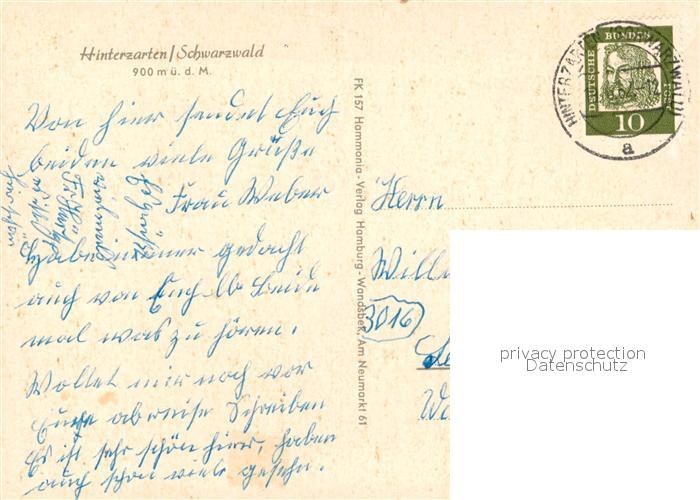 Hinterzarten/Schwarzwald
900 m ü. d. M.
Von hier sendet Euch
beiden viele Grüße
Frau Weber
Habe immer gedacht
auch von Euch beide
mal was zu hören.
Wollet mir noch vor
Eure abreise Schreiben
Es ist sehr schön hier, haben
auch schon viele gesehn.
FK 157 Hammonia-Verlag Hamburg-Wandsbek, Am Neumarkt 61
HINTERZARTEN (SCHWARZWALD)
a
DEUTSCHE BUNDESPOST
10
Herrn
Will
3016
privacy protection
Datenschutz